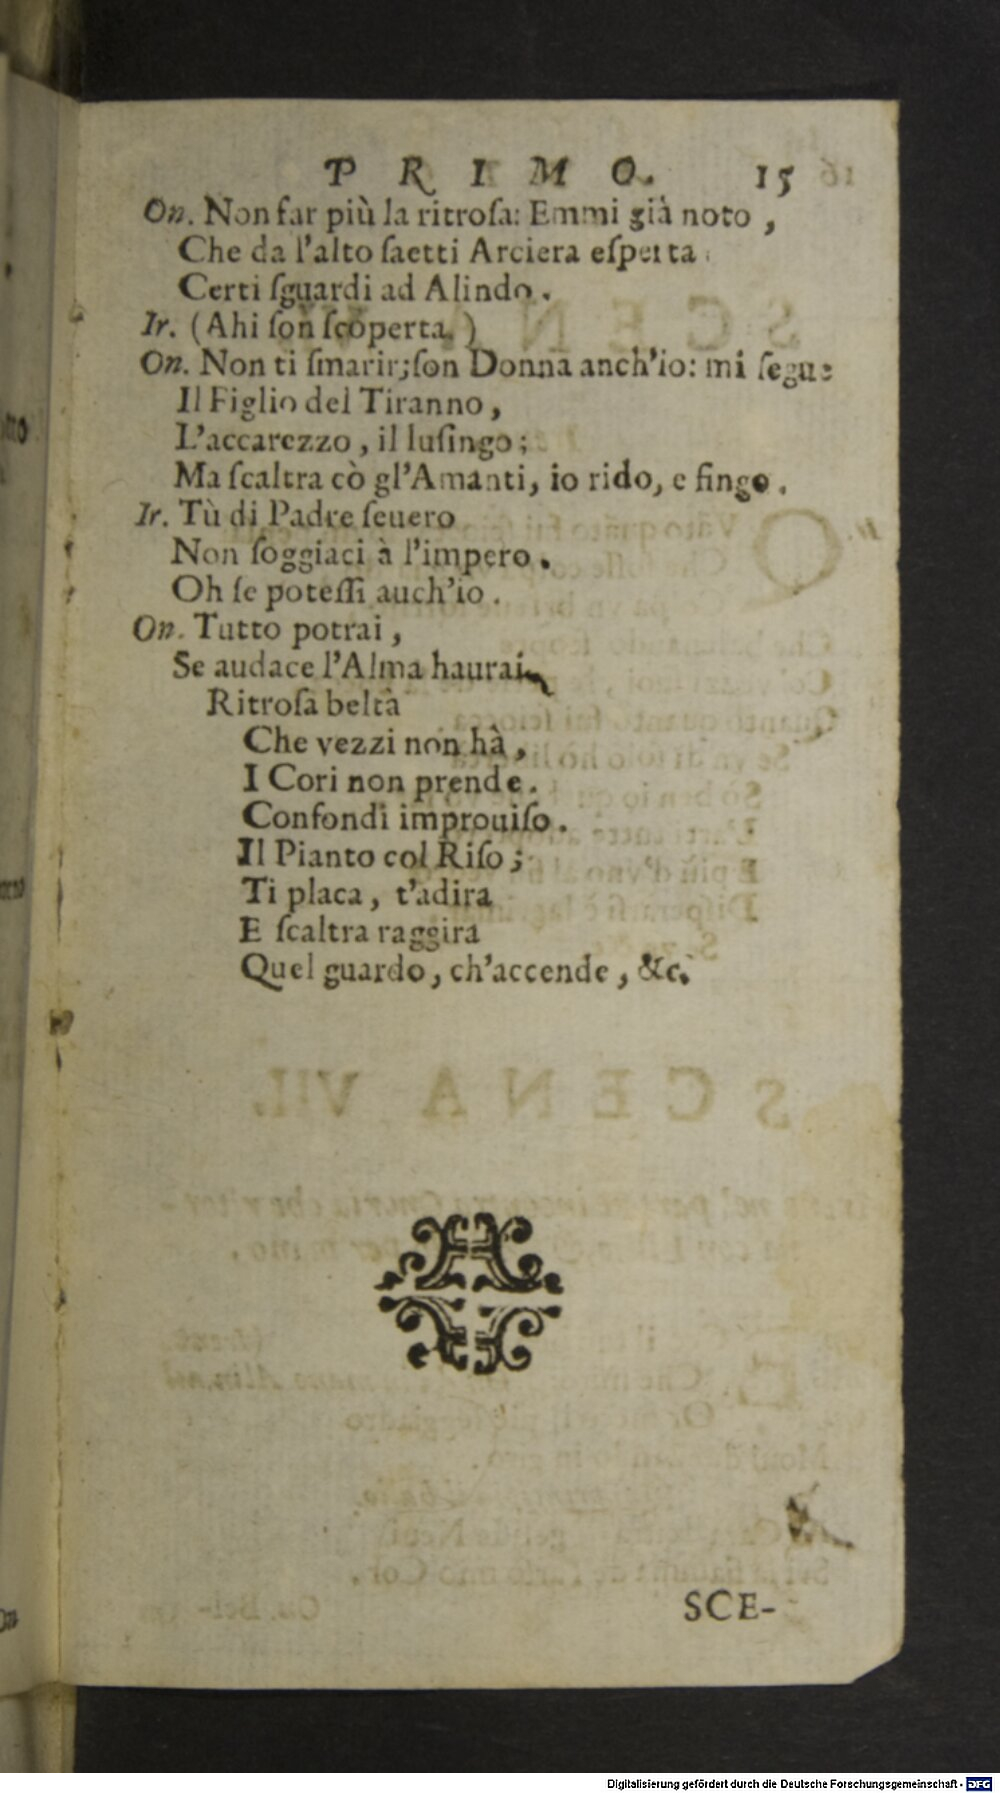 PRIMO. 15
On. Non far più la ritroſa: Emmi già noto,
Che da l'alto ſaetti Arciera eſperta
Certi ſguardi ad Alindo.
Ir. (Ahi ſon ſcoperta.)
On. Non ti ſmarir; ſon Donna anch'io: mi ſegue
Il Figlio del Tiranno,
L'accarezzo, il luſingo;
Ma ſcaltra cò gl'Amanti, io rido, e fingo.
Ir. Tù di Padre ſeuero
Non ſoggiaci à l'impero.
Oh ſe poteſſi auch'io.
On. Tutto potrai,
Se audace l'Alma haurai
Ritroſa beltà
Che vezzi non hà,
I Cori non prende.
Confondi improuiſo.
Il Pianto col Riſo;
Ti placa, t'adira
E ſcaltra raggira
Quel guardo, ch'accende, &c.
SCE-
Digitalisierung gefördert durch die Deutsche Forschungsgemeinschaft - DFG